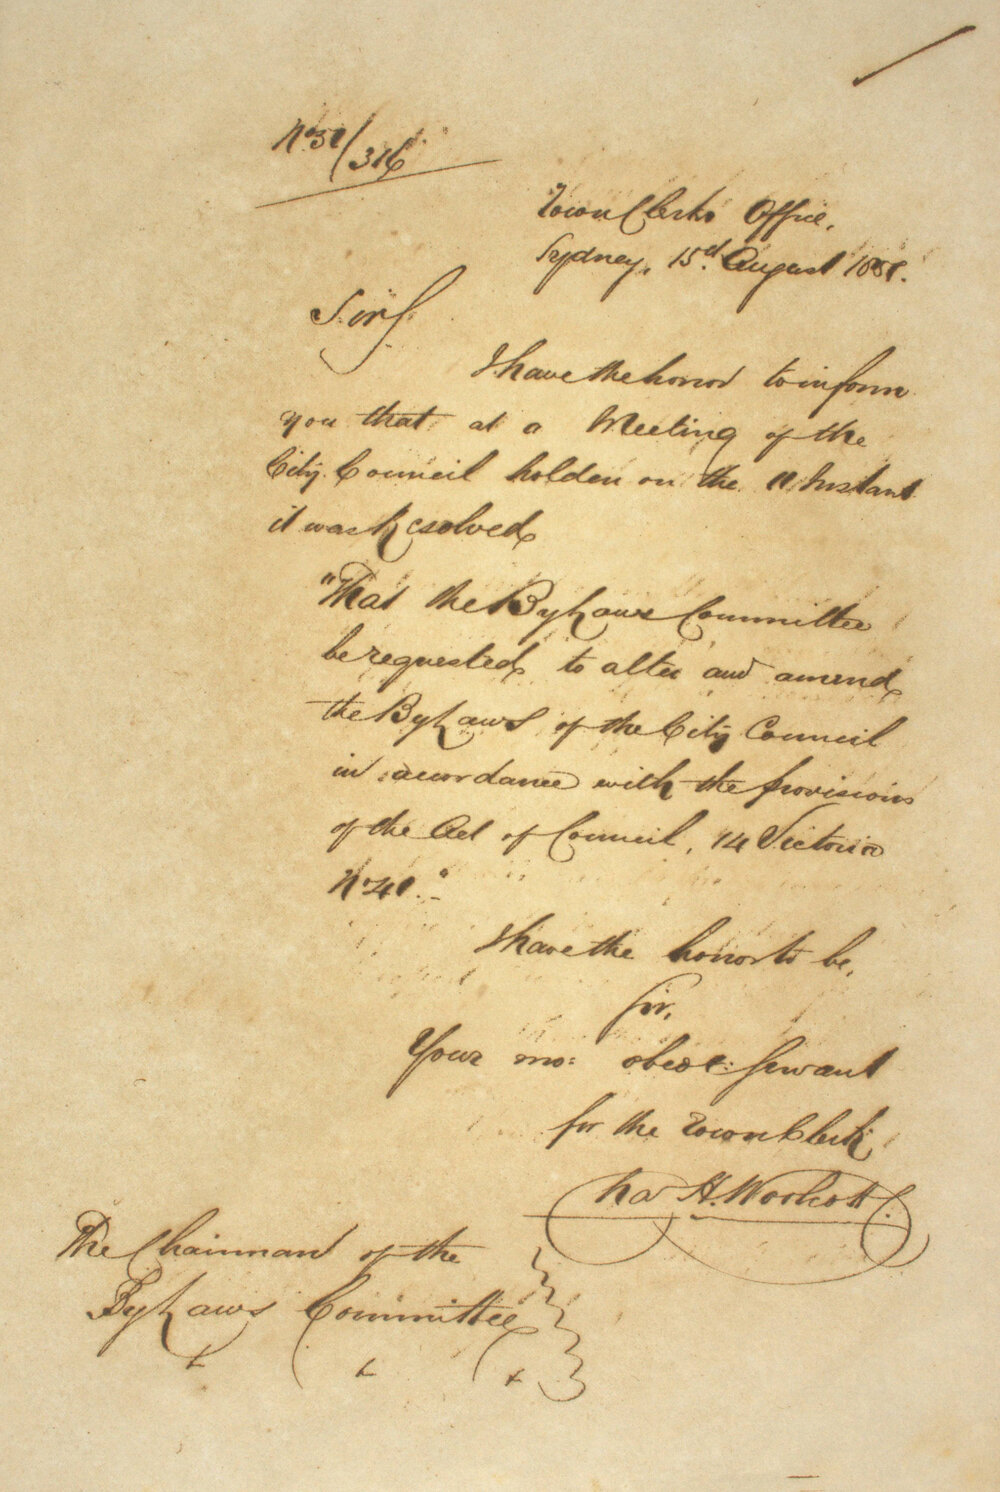 No 51/316
Town Clerks Office,
Sydney, 15th August 1851.
Sir,
I have the honor to inform
you that at a Meeting of the
City Council holden on the 11 Instant
it was Resolved
"That the By Laws Committee
be requested to alter and amend
the By Laws of the City Council
in accordance with the provisions
of the Act of Council, 14 Victoria
No 41."
I have the honor to be,
Sir,
Your mo: obedt: Servant
for the Town Clerk
Chas H. Woolcott
The Chairman of the
By Laws Committee